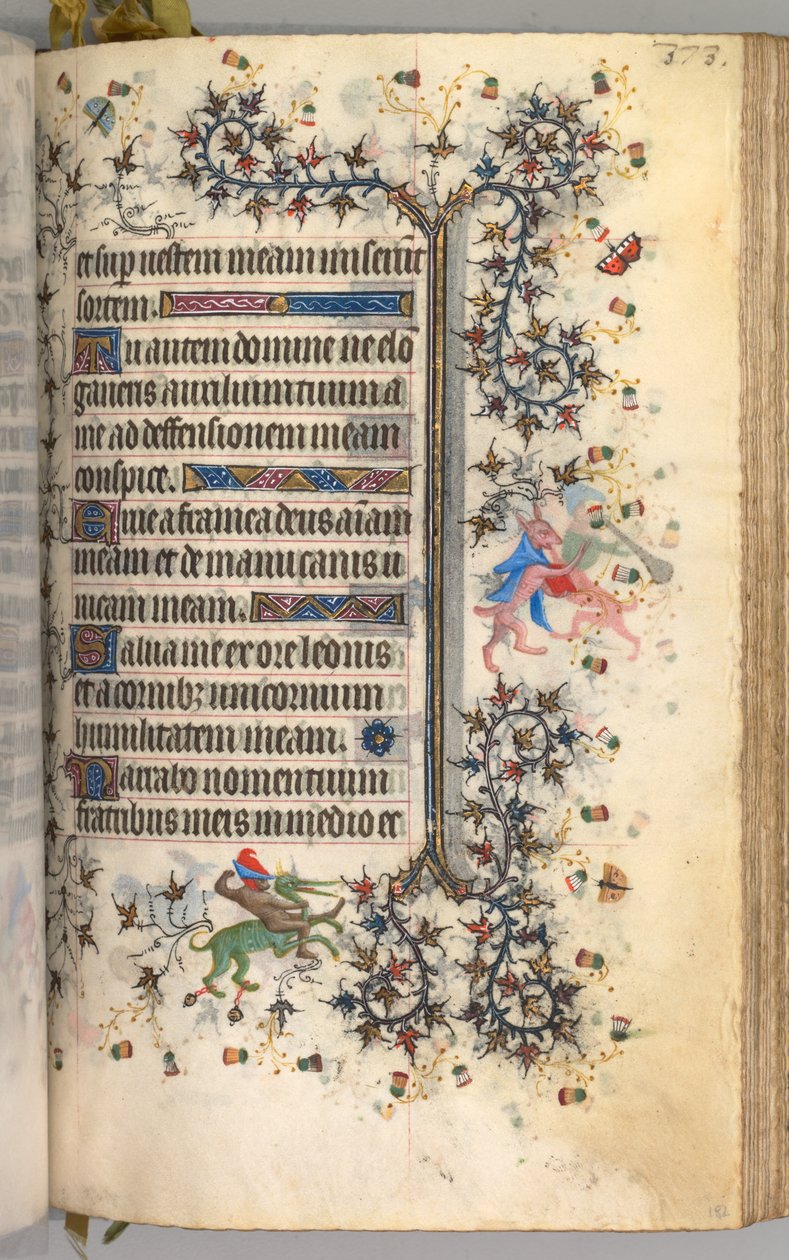 373.
et sup uestem meam miserūt
sortem.
Tu autem domine ne elō
gaueris auxilium tuum a
me ad deffensionem meam
conspice.
Erue a framea deus aīam
meam et de manu canis u
nicam meam.
Salua me ex ore leonis
et a cornibꝫ unicornium
humilitatem meam.
Narrabo nomen tuum
fratribus meis in medio ec
182